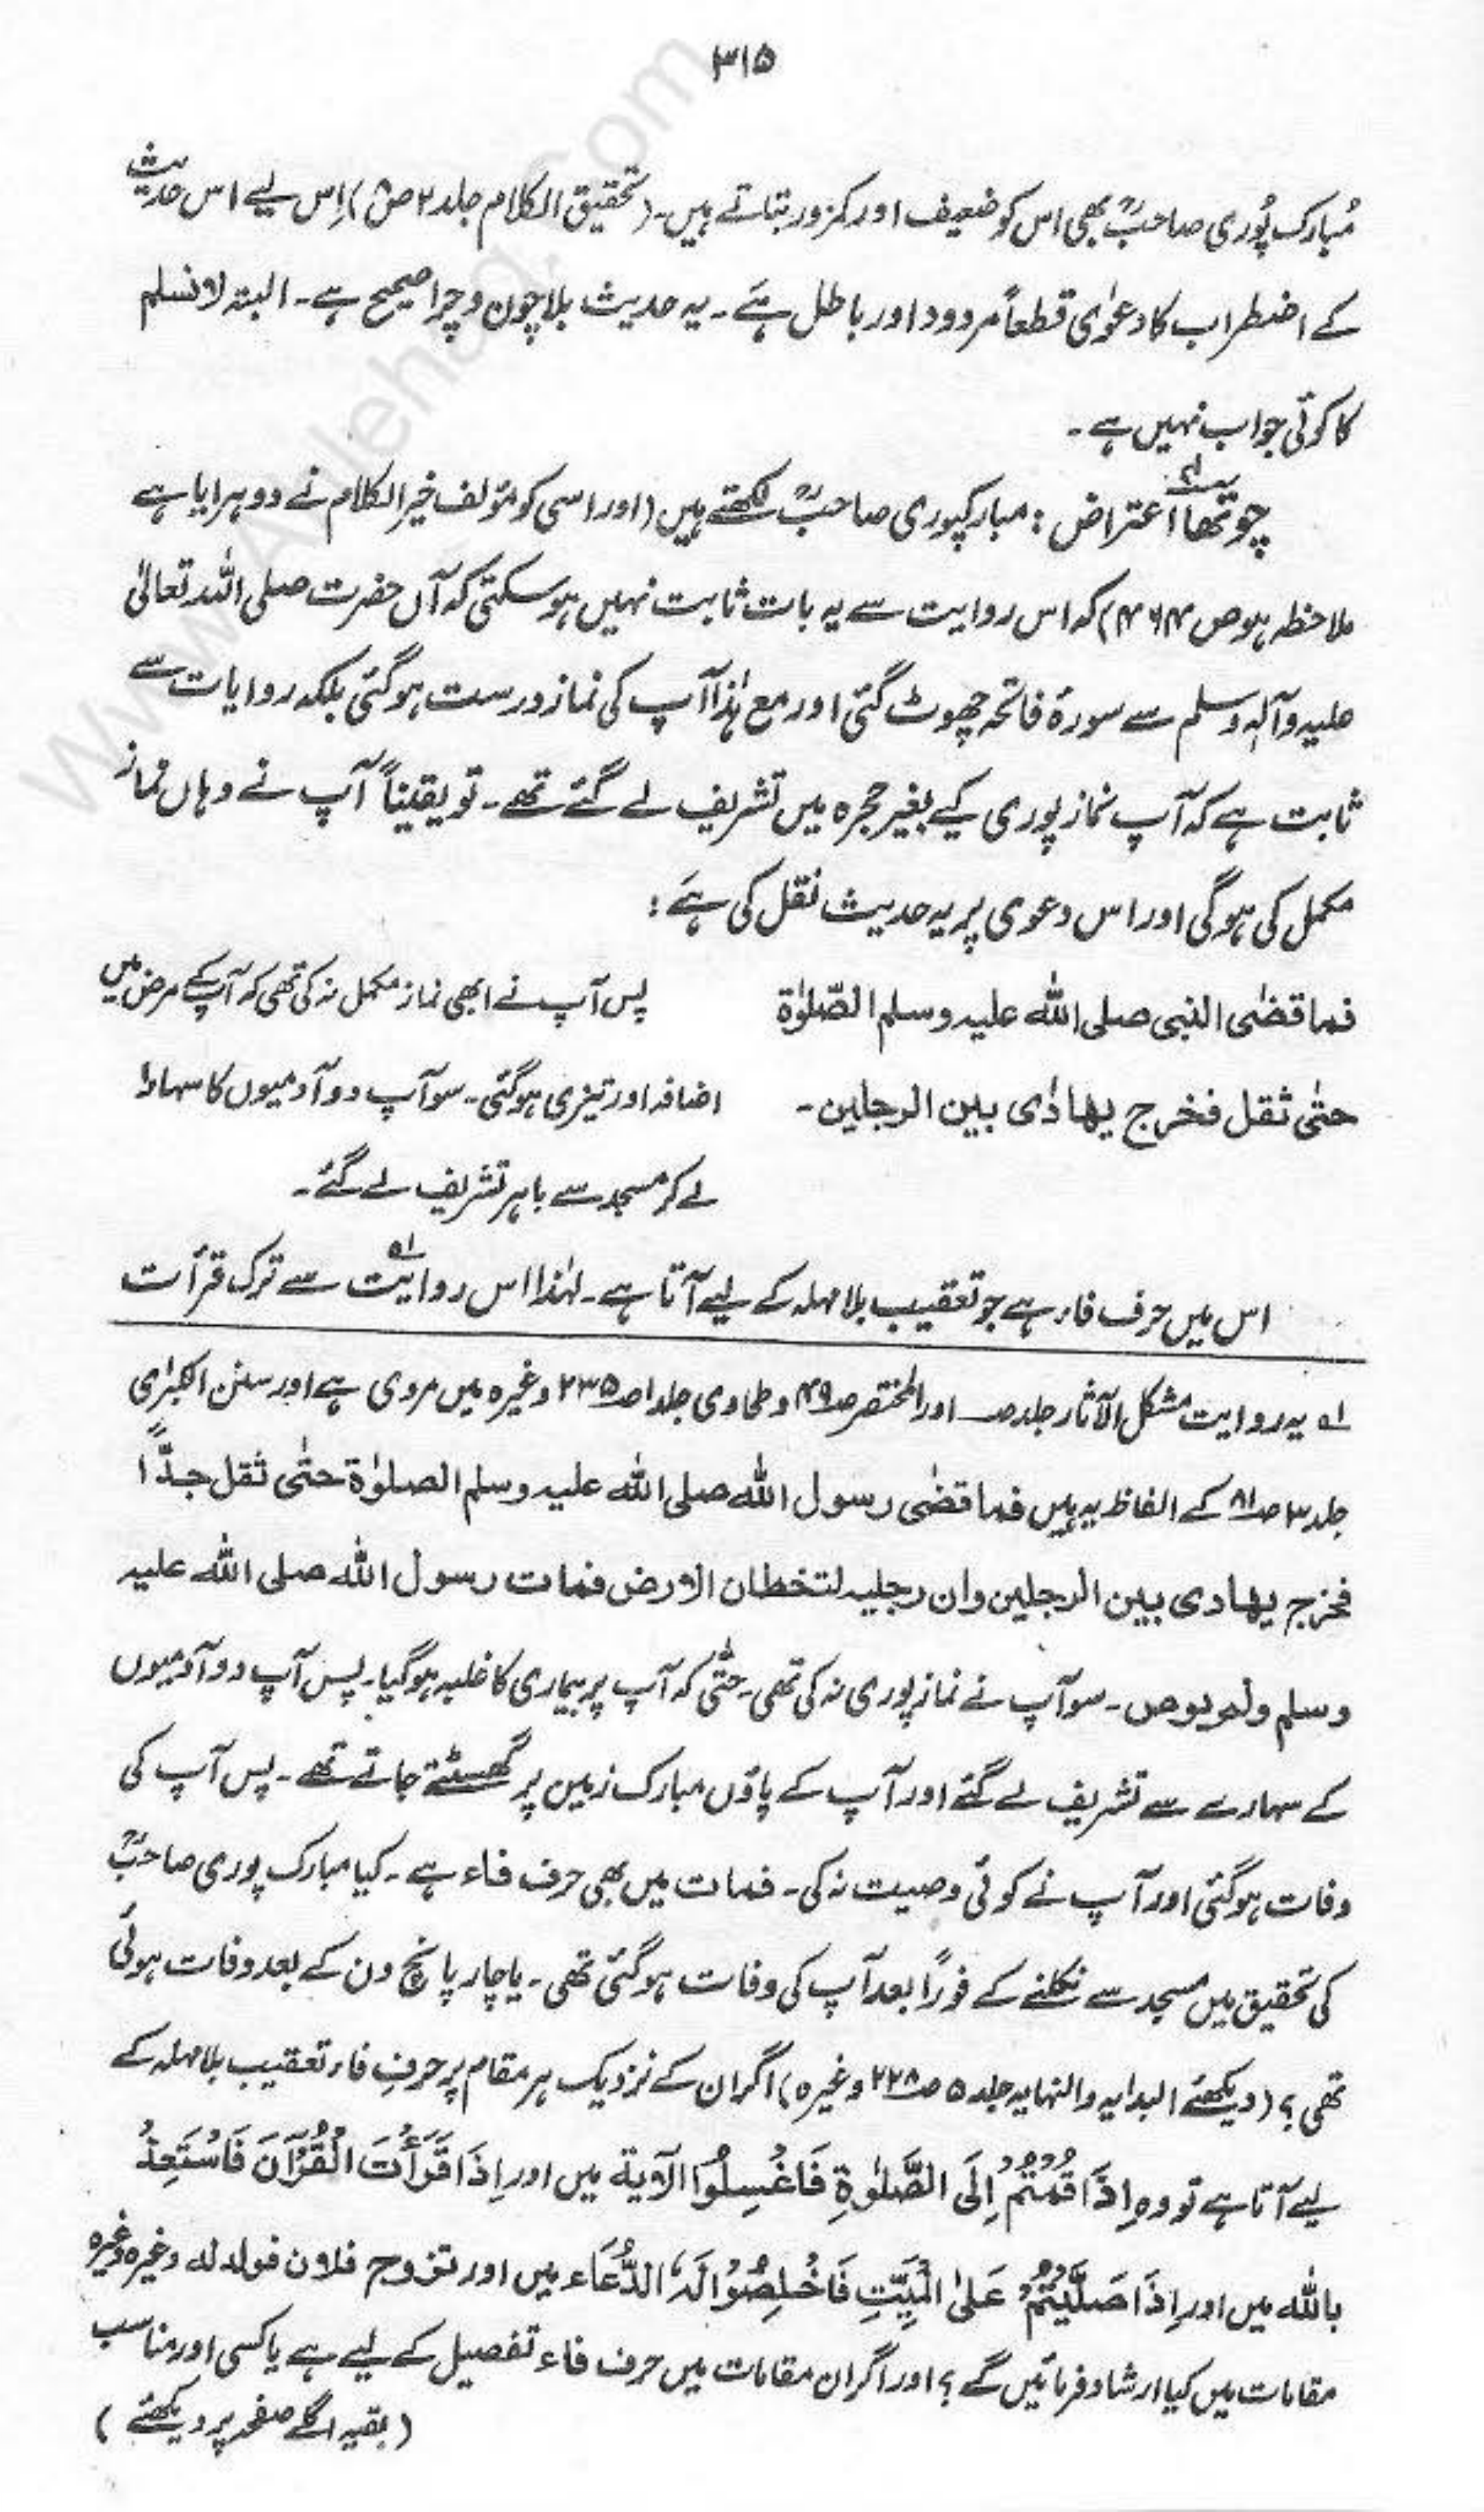 ۳۱۵
مُبارک پُوری صاحبؒ بھی اس کو ضعیف اور کمزور بتاتے ہیں۔ (تحقیق الکلام جلد ۲ ص) اِس لیے اس حدیث
کے اضطراب کا دعوٰی قطعاً مردود اور باطل ہَے۔ یہ حدیث بلا چون و چرا صحیح ہے۔ البتہ لا نسلم
کا کوئی جواب نہیں ہے۔
چوتھا اعتراض: مبارکپوری صاحبؒ لکھتے ہیں (اور اسی کو مؤلف خیر الکلام نے دوہرایا ہے
ملاحظہ ہو ص ۴۶۴) کہ اس روایت سے یہ بات ثابت نہیں ہو سکتی کہ آں حضرت صلی اللہ تعالیٰ
علیہ وآلہٖ وسلم سے سورۂ فاتحہ چھوٹ گئی اور مع ہٰذا آپ کی نماز درست ہو گئی بلکہ روایات سے
ثابت ہے کہ آپ نماز پوری کیے بغیر حجرہ میں تشریف لے گئے تھے۔ تو یقیناً آپ نے وہاں نماز
مکمل کی ہو گی اور اس دعوی پر یہ حدیث نقل کی ہَے:
فما قضٰی النبی صلی اللہ علیہ وسلم الصّلوٰۃ
حتٰی ثقل فخرج یھادٰی بین الرجلین۔
پس آپ نے ابھی نماز مکمل نہ کی تھی کہ آپ کے مرض میں
اضافہ اور تیزی ہو گئی۔ سو آپ دو آدمیوں کا سہارا
لے کر مسجد سے باہر تشریف لے گئے۔
اس میں حرف فاء ہے جو تعقیب بلا مہلہ کے لیے آتا ہے۔ لہٰذا اس روایت لے سے ترک قرأت
لے یہ روایت مشکل الآثار جلد ص اور المختصر ص۴۹ و طحاوی جلد۱ ص۲۳۵ وغیرہ میں مروی ہے اور سنن الکبرٰی
جلد۳ ص۸۱ کے الفاظ یہ ہیں فما قضٰی رسول اللہ صلی اللہ علیہ وسلم الصلوٰۃ حتٰی ثقل جدًّا
فخرج یھادی بین الرجلین وان رجلیہ لتخطان الارض فمات رسول اللہ صلی اللہ علیہ
وسلم ولم یوص۔ سو آپ نے نماز پوری نہ کی تھی۔ حتّٰی کہ آپ پر بیماری کا غلبہ ہو گیا۔ پس آپ دو آدمیوں
کے سہارے سے تشریف لے گئے اور آپ کے پاؤں مبارک زمین پر گھسٹتے جاتے تھے۔ پس آپ کی
وفات ہو گئی اور آپ نے کوئی وصیت نہ کی۔ فمات میں بھی حرف فاء ہے۔ کیا مبارک پوری صاحبؒ
کی تحقیق میں مسجد سے نکلنے کے فوراً بعد آپ کی وفات ہو گئی تھی۔ یا چار پانچ دن کے بعد وفات ہوئی
تھی؟ (دیکھئے البدایہ والنہایہ جلد ۵ ص۲۲۸ وغیرہ) اگر ان کے نزدیک ہر مقام پر حرفِ فاء تعقیب بلا مہلہ کے
لیے آتا ہے تو وہ اِذَا قُمْتُمْ اِلَی الصَّلٰوۃِ فَاغْسِلُوْا الآیۃ میں اور اِذَا قَرَأْتَ الْقُرْآنَ فَاسْتَعِذْ
باللہ میں اور اِذَا صَلَّیْتُمْ عَلَی الْمَیِّتِ فَاخْلِصُوْا لَہٗ الدُّعَاء میں اور تزوج فلان فولد لہ وغیرہ وغیرہ
مقامات میں کیا ارشاد فرمائیں گے؟ اور اگر ان مقامات میں حرف فاء تفصیل کے لیے ہے یا کسی اور مناسب
(بقیہ اگلے صفحہ پر دیکھئے)